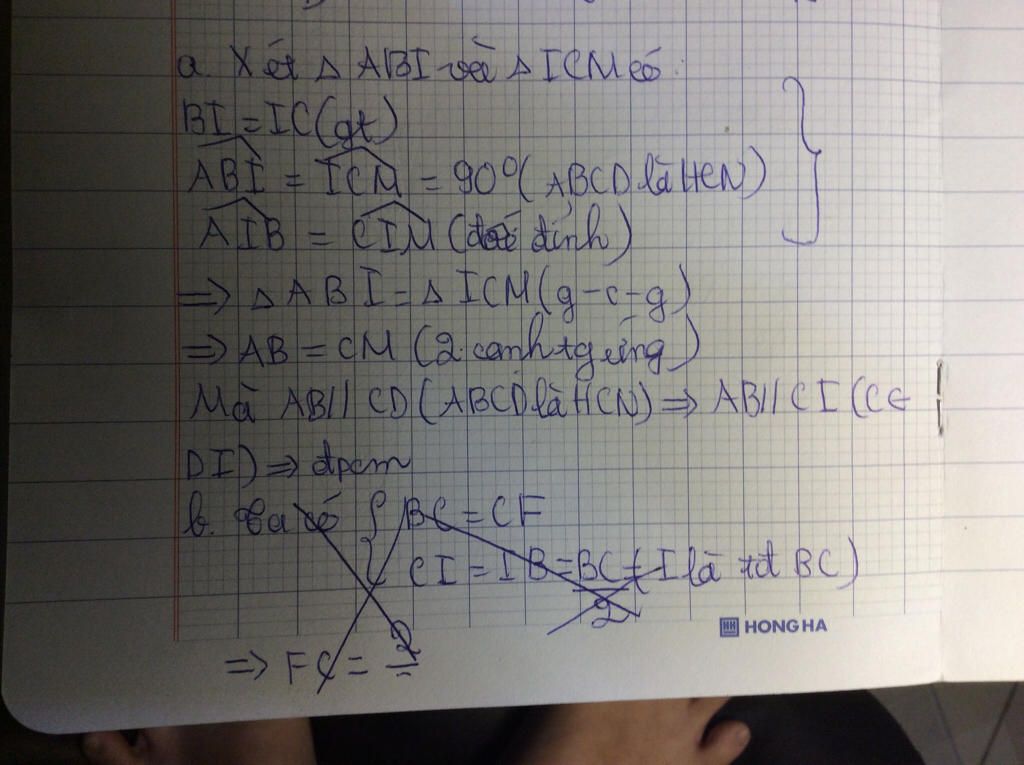 a. Xét △ ABI và △ ICM có:
BI = IC (gt)
ABI = ICM = 90° (ABCD là HCN)
AIB = CIM (đối đỉnh)
=> △ ABI = △ ICM (g-c-g)
=> AB = CM (2 cạnh tg ứng)
Mà AB // CD (ABCD là HCN) => AB // CI (C ∈
DI) => đpcm
b. Ta có { BC = CF
CI = IB = BC/2 (I là tđ BC)
HONG HA
=> FC = 2